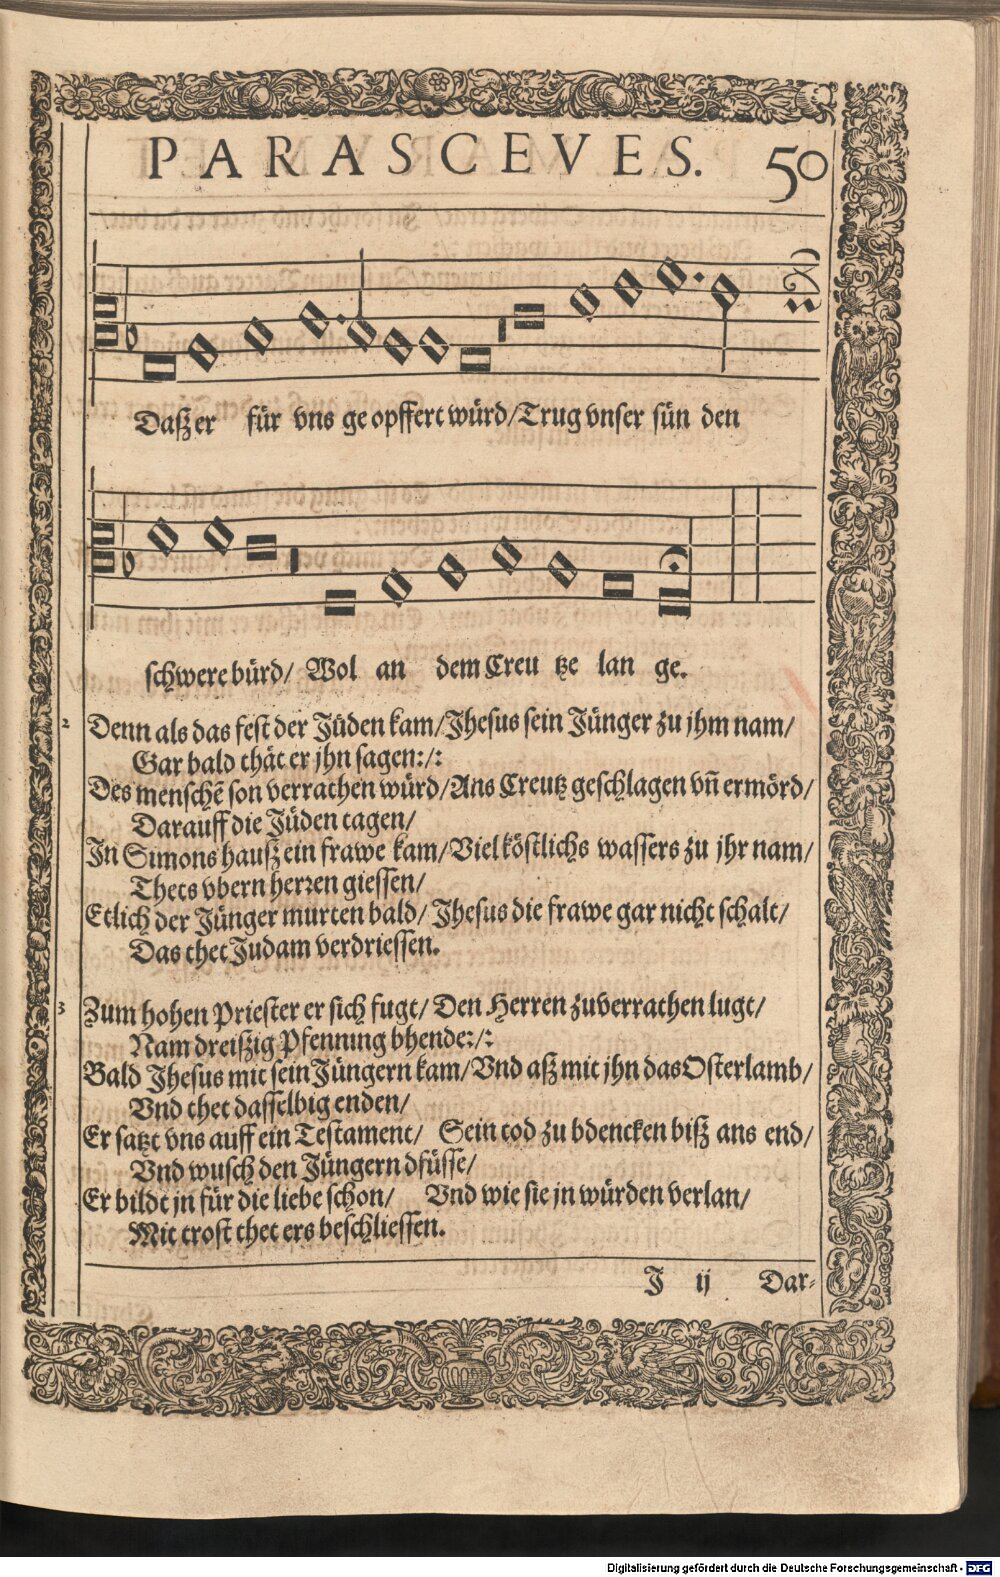 PARASCEVES. 50
Daſz er für vns ge opffert würd/ Trug vnſer ſün den
ſchwere bürd/ Wol an dem Creu tze lan ge.
2 Denn als das feſt der Jüden kam/ Jheſus ſein Jünger zu jhm nam/
Gar bald thät er jhn ſagen:/:
Des menſchẽ ſon verrathen würd/ Ans Creutz geſchlagen vñ ermörd/
Darauff die Jüden tagen/
In Simons hauſz ein frawe kam/ Viel köſtlichs waſſers zu jhr nam/
Thets vbern herꝛen gieſſen/
Etlich der Jünger murten bald/ Jheſus die frawe gar nicht ſchalt/
Das thet Judam verdrieſſen.
3 Zum hohen Prieſter er ſich fugt/ Den Herren zuverrathen lugt/
Nam dreiſzig Pfenning bhende:/:
Bald Jheſus mit ſein Jüngern kam/ Vnd aſz mit jhn das Oſterlamb/
Vnd thet daſſelbig enden/
Er ſatzt vns auff ein Teſtament/ Sein tod zu bdencken biſz ans end/
Vnd wuſch den Jüngern dfüſſe/
Er bildt jn für die liebe ſchon/ Vnd wie ſie jn würden verlan/
Mit troſt thet ers beſchlieſſen.
J ij Dar⸗
Digitalisierung gefördert durch die Deutsche Forschungsgemeinschaft - DFG